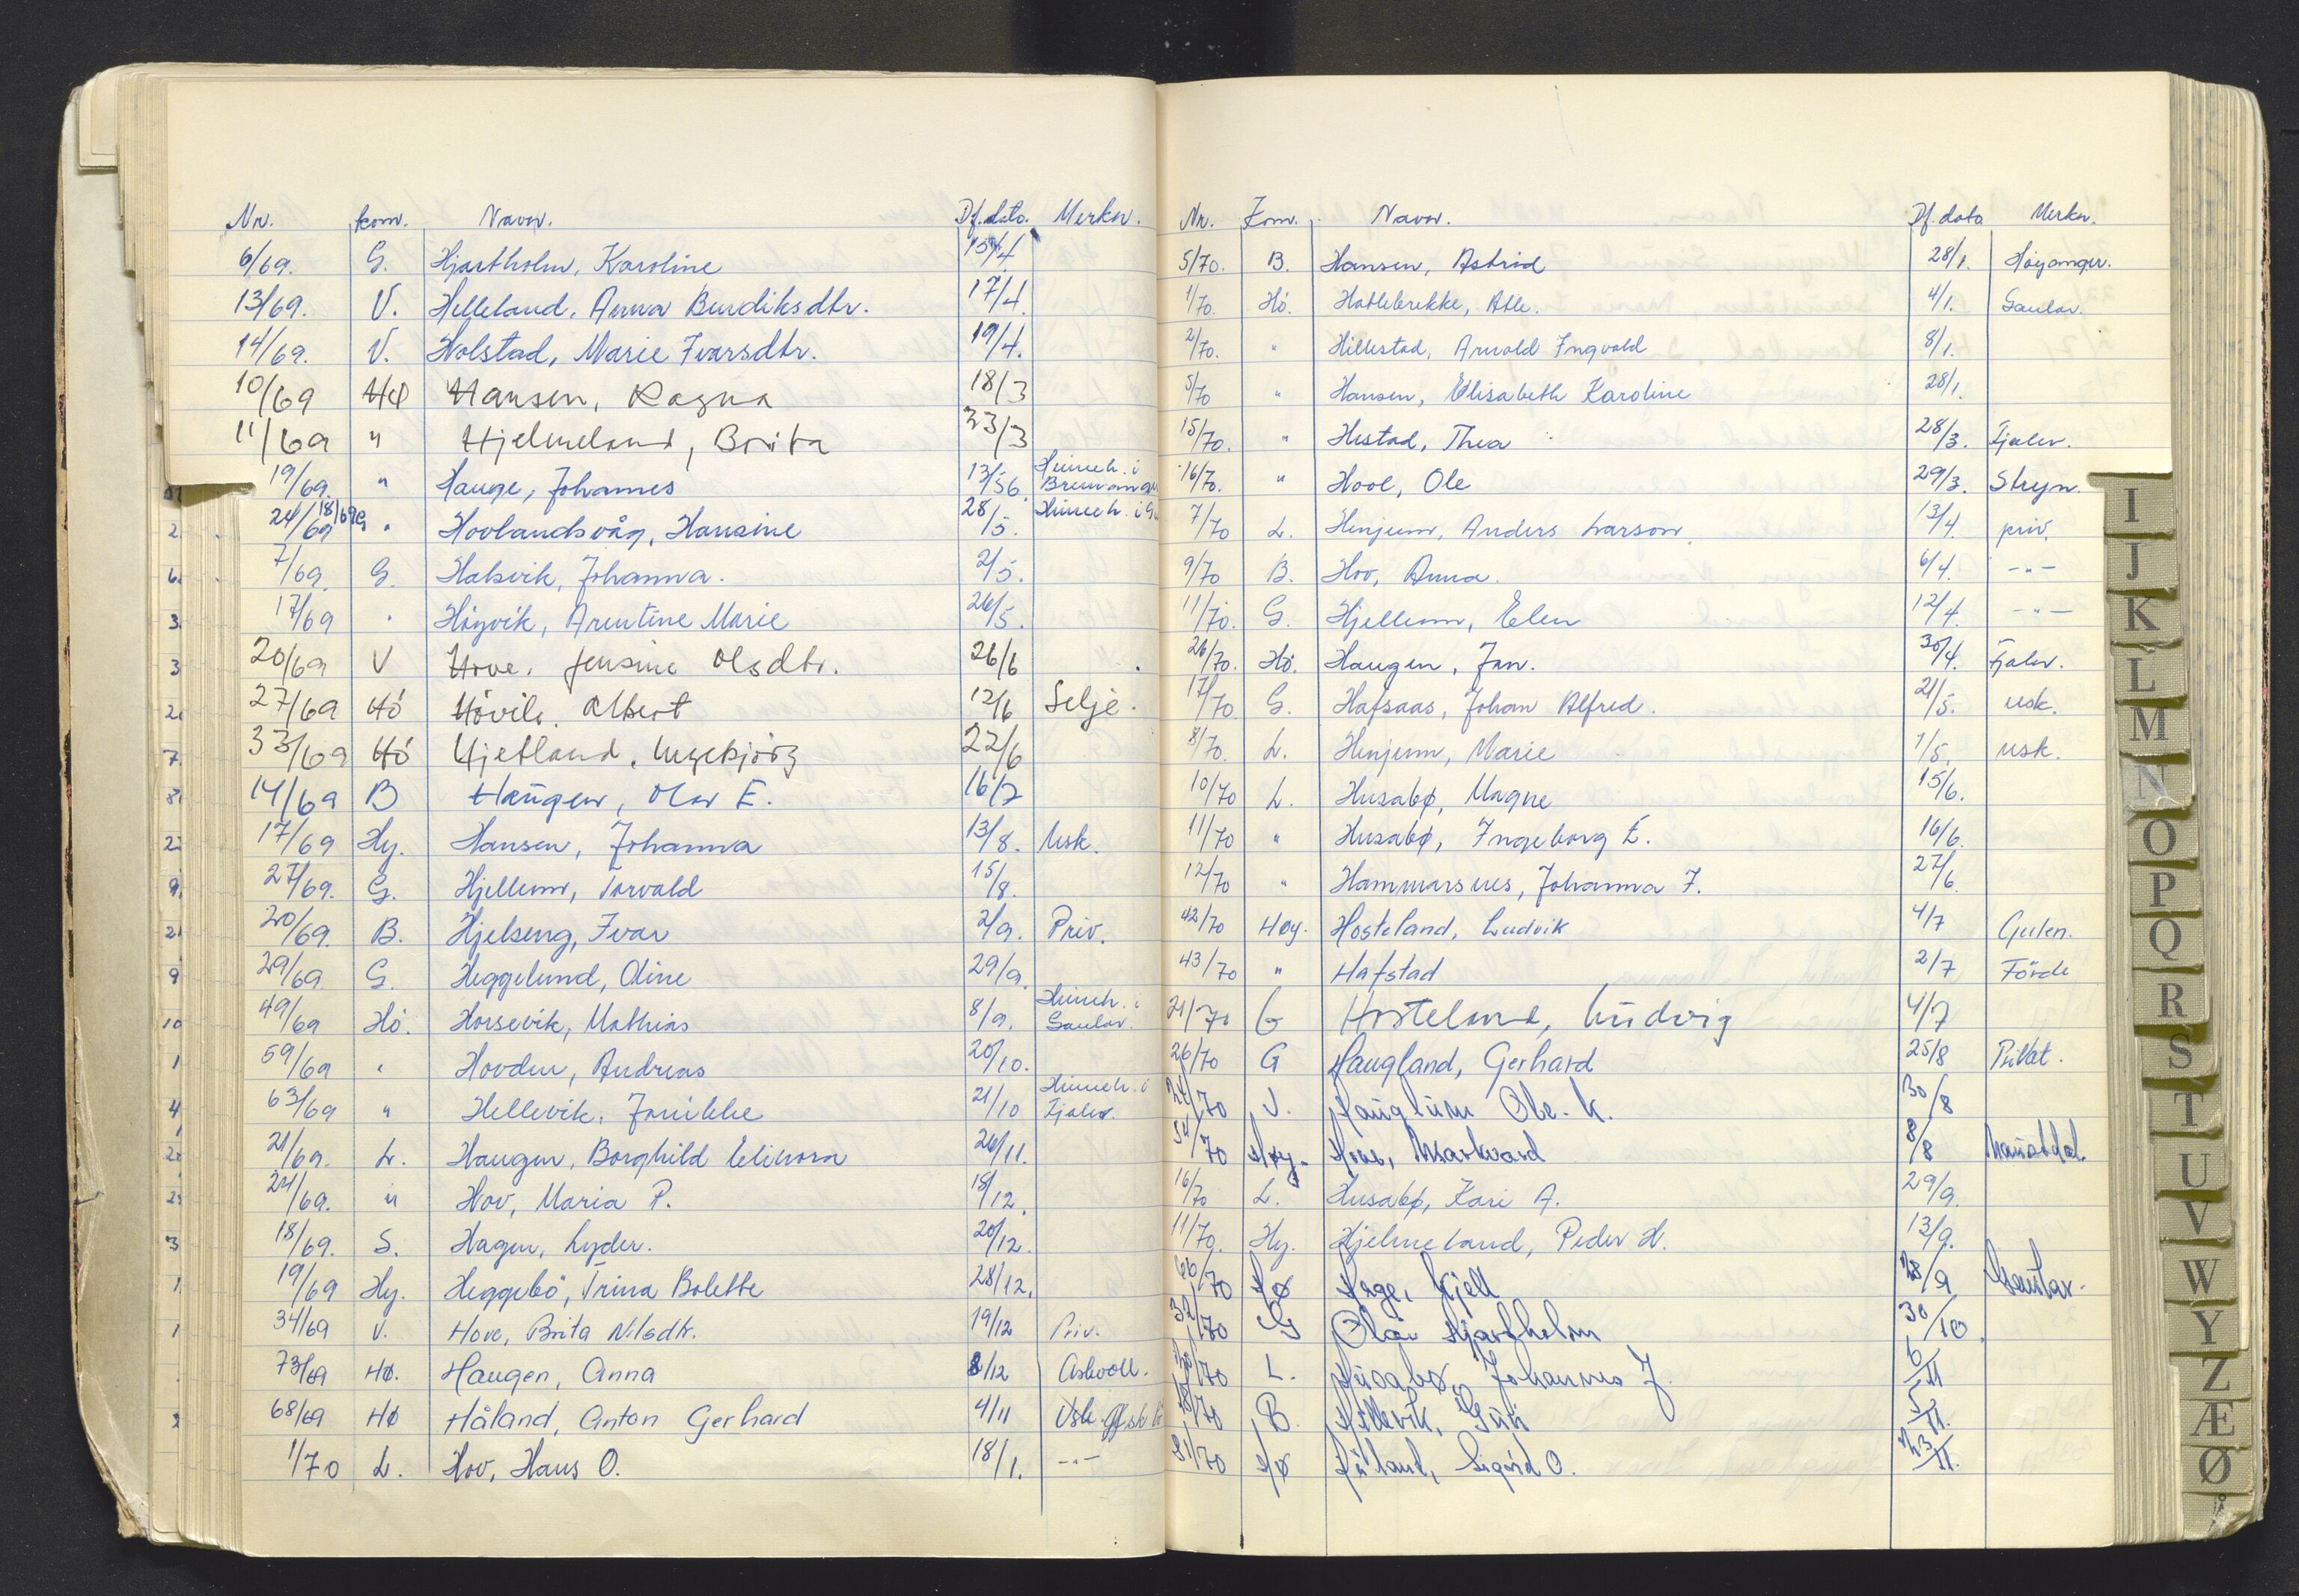 Nr. kom. Navn. Df.dato. Merkn.
6/69. G. Hjartholm, Karoline 15/4
13/69. V. Helleland, Anna Bendiksdtr. 17/4.
14/69. V. Holstad, Marie Ivarsdtr. 19/4.
10/69 HØ Hansen, Ragna 18/3
11/69 " Hjelmeland, Brita 23/3
19/69. " Hauge, Johannes 13/56. Heimeh. i Bremanger
24/69 18/69G " Hovlandsvåg, Hansine 28/5. Heimeh. i G
7/69. G. Halsvik, Johanna. 2/5.
17/69 " Høyvik, Arentine Marie 26/5.
20/69 V Hove. Jensine Olsdtr. 26/6
27/69 Hö Hövik. Albert 12/6 Selje.
33/69 Hö Hjetland. Ingebjörg 22/6
14/69 B Haugen, Olav E. 16/7
17/69 Hy. Hansen, Johanna 13/8. Usk.
27/69. G. Hjellum, Torvald 15/8.
20/69. B. Hjelseng, Ivar 2/9. Priv.
29/69. G. Heggelund, Oline 29/9.
49/69 Hö. Horsevik, Mathias 8/9. Heimeh. i Gaular.
59/69 " Hovden, Andreas 20/10.
63/69 " Hellevik. Jonikke 21/10 Heimeh. i Fjaler.
21/69. L. Haugen, Borghild Elinora 26/11.
24/69. " Hov, Maria P. 18/12.
18/69. S. Hagen, Lyder. 20/12.
19/69 Hy. Heggebö, Trina Bolette 28/12.
34/69 V. Hove, Brita Nilsdtr. 19/12 Priv.
73/69 HØ. Haugen, Anna 8/12 Askvoll.
68/69 HØ Håland, Anton Gerhard 4/11 Usk.
1/70 L. Hov, Hans O. 18/1. -"-
Nr. Kom. Navn. Df. dato Merkn.
5/70. B. Hansen, Astrid 28/1. Høyanger.
1/70. Hö. Hatlebrekke, Atle. 4/1. Gaular.
2/70. " Hillestad, Arnold Ingvald 8/1.
5/70 " Hansen, Elisabeth Karoline 28/1.
15/70. " Hestad, Thea 28/3. Fjaler.
16/70. " Hool, Ole 29/3. Stryn.
7/70 L. Henjum, Anders Larson. 13/4. priv.
9/70 B. Hov, Anna. 6/4. -"-
11/70. G. Hjellum, Elen 12/4. -"-
26/70. Hö. Haugen, Jan. 30/4. Fjaler.
17/70 G. Hafsaas, Johan Alfred. 21/5. usk.
8/70. L. Henjum, Marie 1/5. usk.
10/70 L. Husabø, Magne 15/6.
11/70 " Husabø, Ingeborg E. 16/6.
12/70 " Hammersnes, Johanna J. 27/6.
42/70 Høy. Hosteland, Ludvik 4/7 Gulen.
43/70 " Hafstad 2/7 Förde
21/70 G Hosteland, Ludvig 4/7
26/70 G Haugland, Gerhard 25/8 Privat.
24/70 V. Hauglum Ole. K. 30/8
54/70 Høy. Hove, Markvard 8/8 Naustdal.
16/70 L. Husabø, Kari A. 29/9.
11/70. Hy. Hjelmeland, Peder H. 13/9.
66/70 Hø Hage, Kjell 28/9 Gaular.
32/70 G Olav Hjartholm 30/10.
70 L. Husabø, Johannes J. 6/11
18/70 B. Hellevik, Guri 5/11.
81/70 Hø Håland, Sigurd O. 23/11.
I
J
K
L
M
N
O
P
Q
R
S
T
U
V
W
Y
Z
Æ
Ø